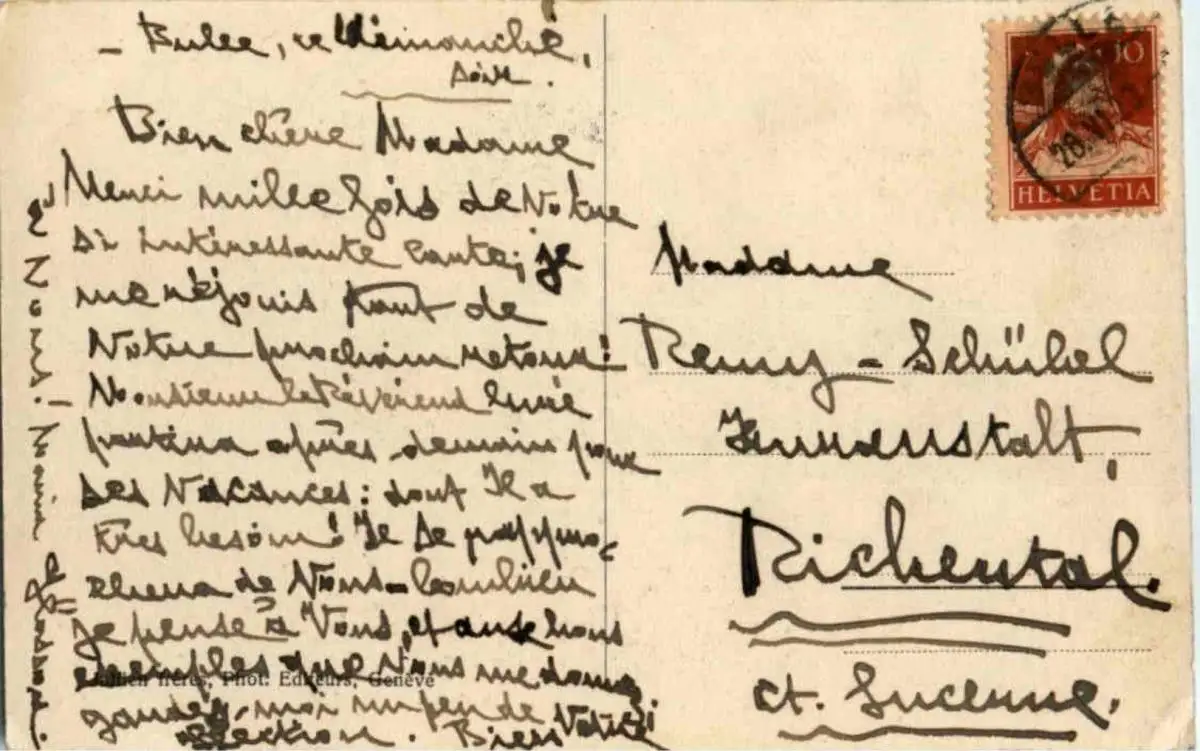 – Bulle, ce dimanche,
soir.
Bien chère Madame
Merci mille fois de Votre
si intéressante carte; je
me réjouis tant de
Votre prochain retour!
Monsieur le Révérend Curé
partira après-demain pour
ses vacances: dont Il a
très besoin! Il se rappro-
chera de Vous – Combien
je pense à Vous, et aux bons
exemples que Vous me donnez
gardez-moi un peu de Votre si
affection. Bien
à Vous! –
Jullien frères, Phot. Editeurs, Genève
10
HELVETIA
28.VI
Madame
Remy – Schübel
Kuranstalt,
Richental.
ct. Lucerne.